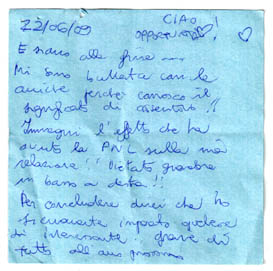 22/06/09
CIAO
E siamo alla fine ...
Mi sono buttata con le
amiche perché conosco il
significato di assertivo!!
Immagini l'effetto che ha
avuto la PNL sulla mia
relazione!! Vietato guardare
in basso a destra!!
Per concludere direi che ho
sicuramente imparato qualcosa
di interessante! Grazie di
tutto all'anno prossimo